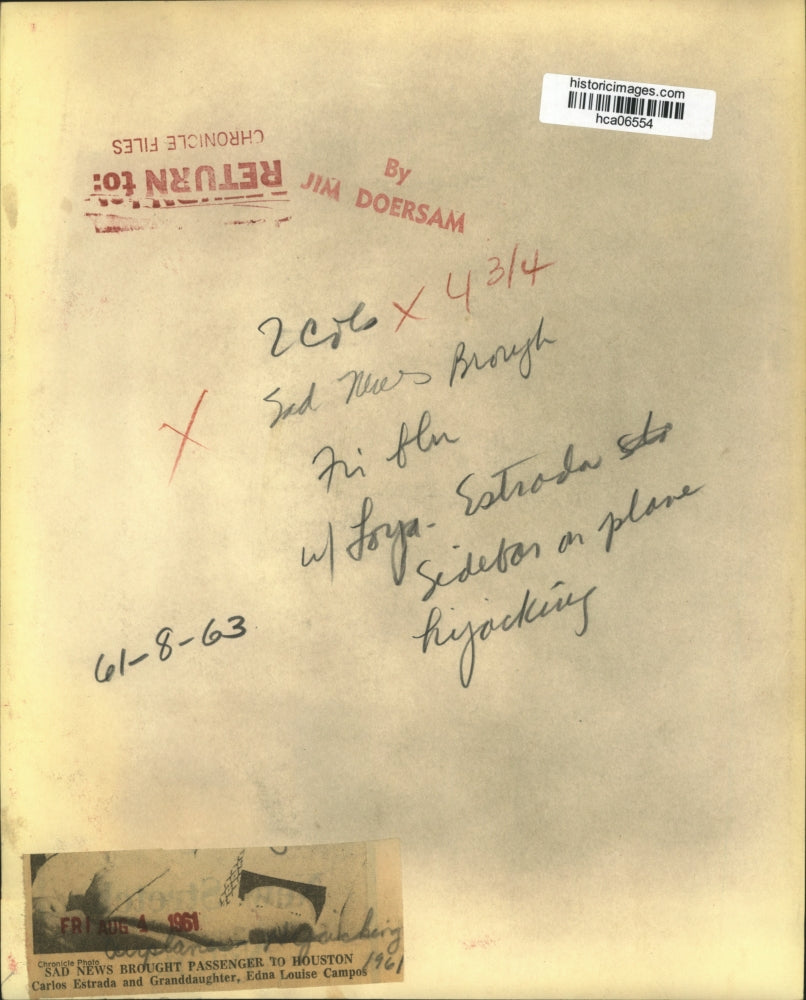 historicimages.com
hca06554
CHRONICLE FILES
RETURN to:
By
JIM DOERSAM
2 Cols x 4 3/4
Sad News Brough
X
Fri
w/ Loya - Estrada
Sidebar on plane
hijacking
61-8-63
FRI AUG 4 1961
airplanes Hijacking
1961
Chronicle Photo
SAD NEWS BROUGHT PASSENGER TO HOUSTON
Carlos Estrada and Granddaughter, Edna Louise Campos